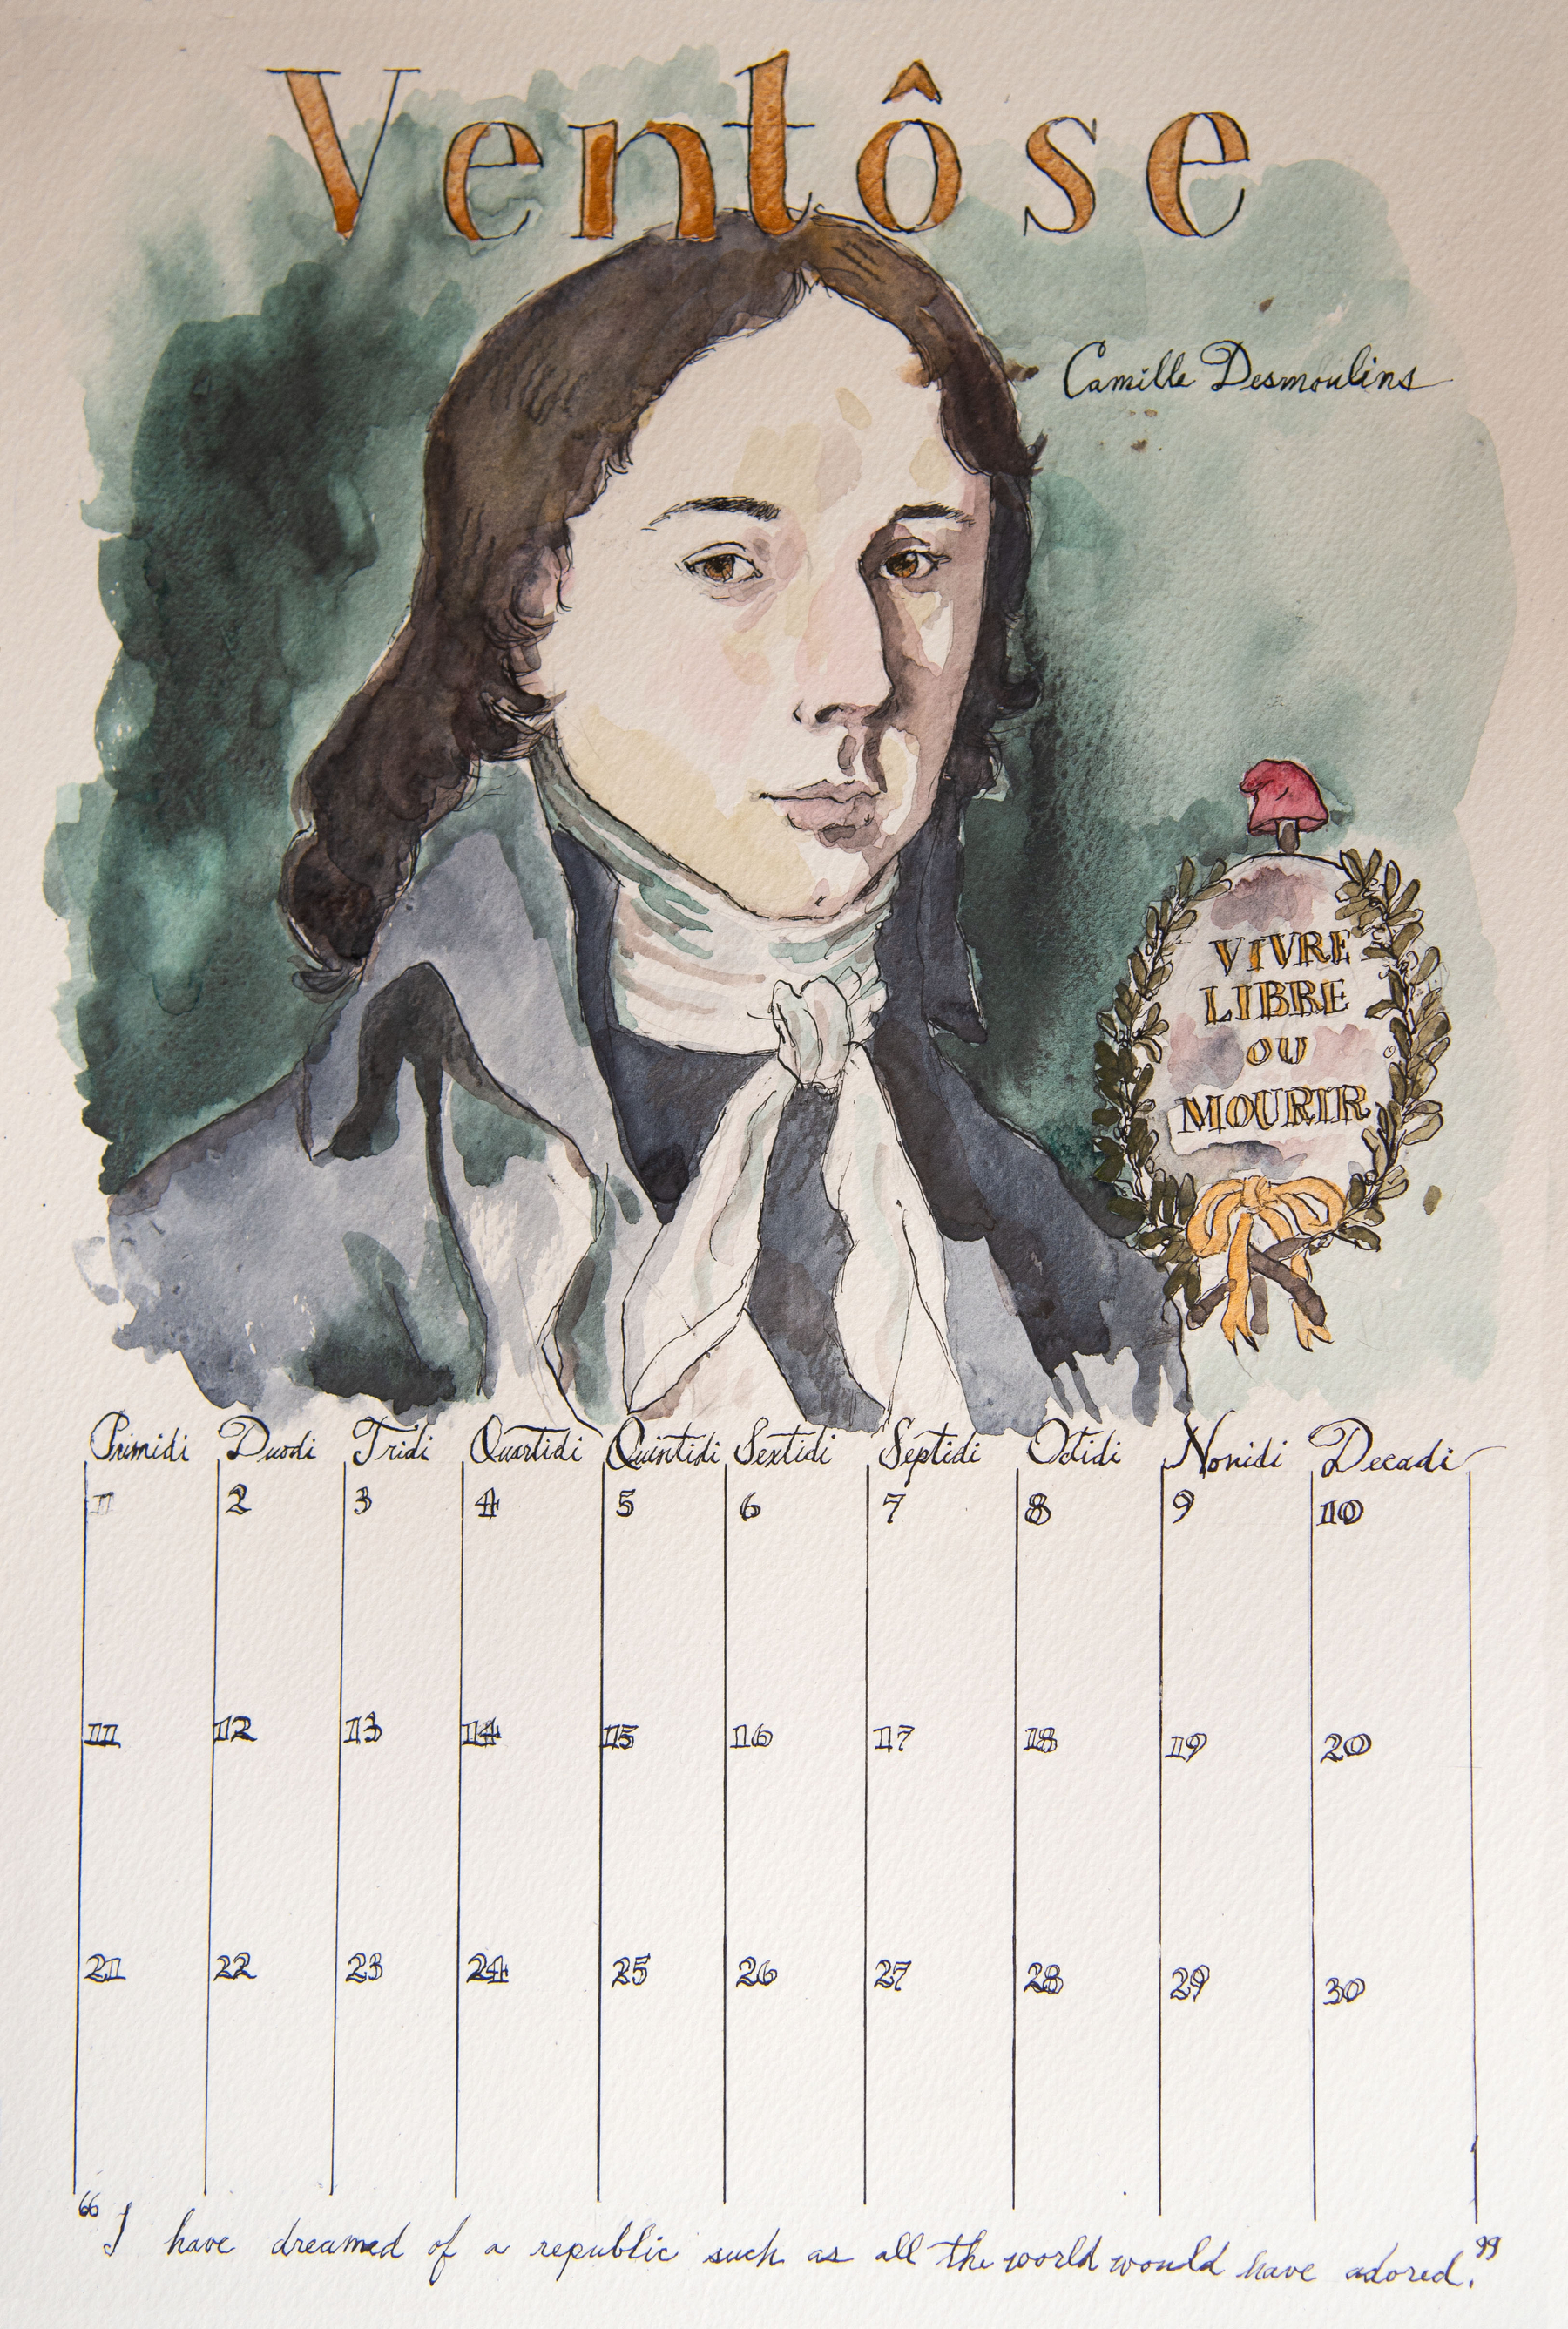 Ventôse
Camille Desmoulins
VIVRE
LIBRE
OU
MOURIR
Primidi Duodi Tridi Quartidi Quintidi Sextidi Septidi Octidi Nonidi Decadi
1 2 3 4 5 6 7 8 9 10
11 12 13 14 15 16 17 18 19 20
21 22 23 24 25 26 27 28 29 30
“I have dreamed of a republic such as all the world would have adored.”